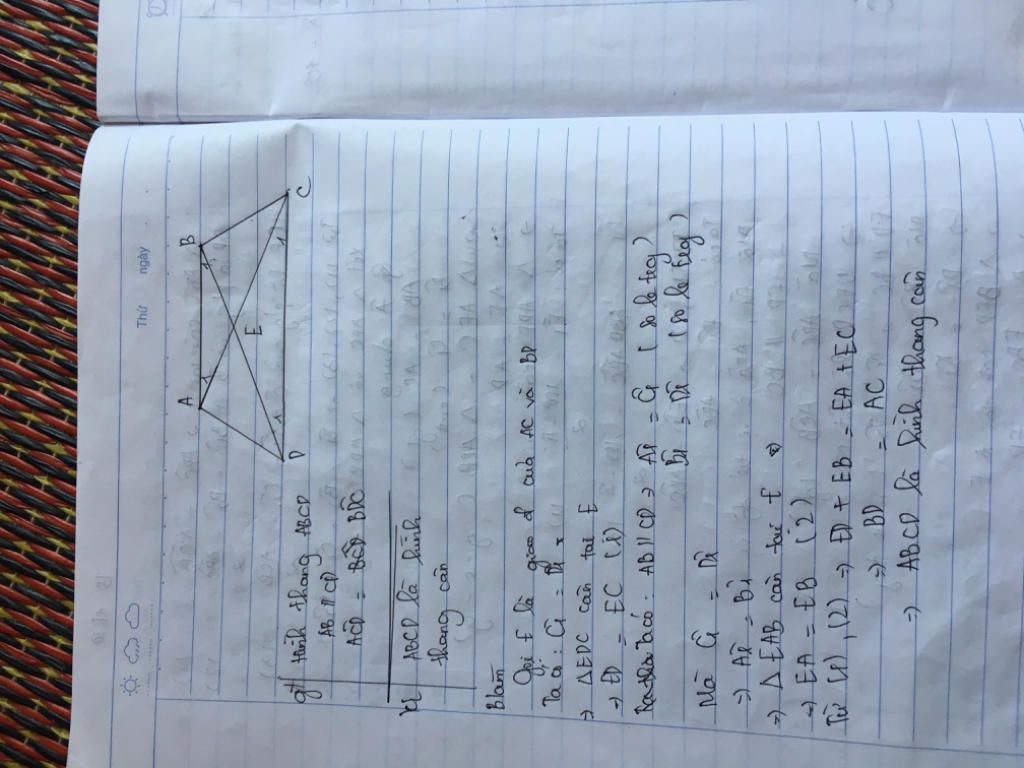 Thứ ngày
A B
E
D C
gt hình thang ABCD
AB // CD
ACD = BDC
kl ABCD là hình
thang cân
Blàm
Gọi E là giao d của AC và BD
Ta có: C1 = D1
=> ΔEDC cân tại E
=> ED = EC (1)
Ta có: AB // CD => A1 = C1 (so le trog)
B1 = D1 (so le trog)
Mà C1 = D1
=> A1 = B1
=> Δ EAB cân tại E
=> EA = EB (2)
Từ (1), (2) => ED + EB = EA + EC
=> BD = AC
=> ABCD là hình thang cân